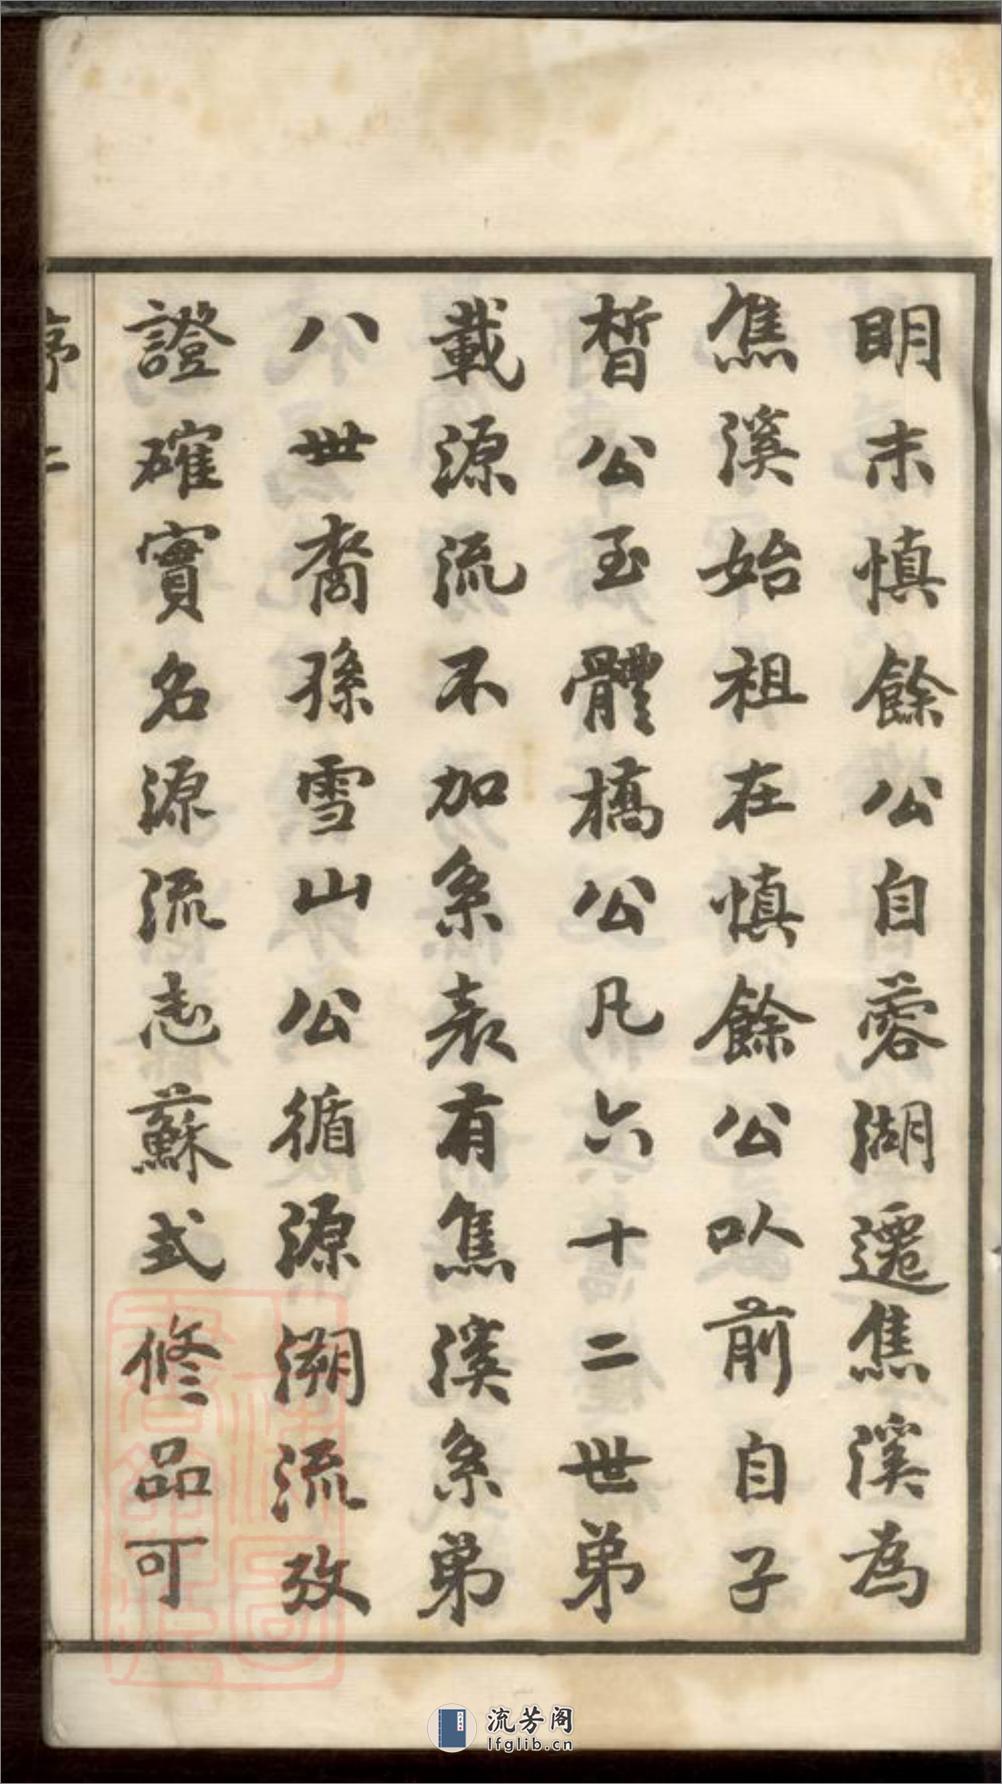 明末慎餘公自蓉湖遷焦溪為
焦溪始祖在慎餘公以前自子
晳公至體橋公凡六十二世弟
載源流不加系表有焦溪系弟
八世裔孫雪山公循源溯流攷
證確實名源流志蘇式修品可
序 二
流芳阁
lfglib.cn